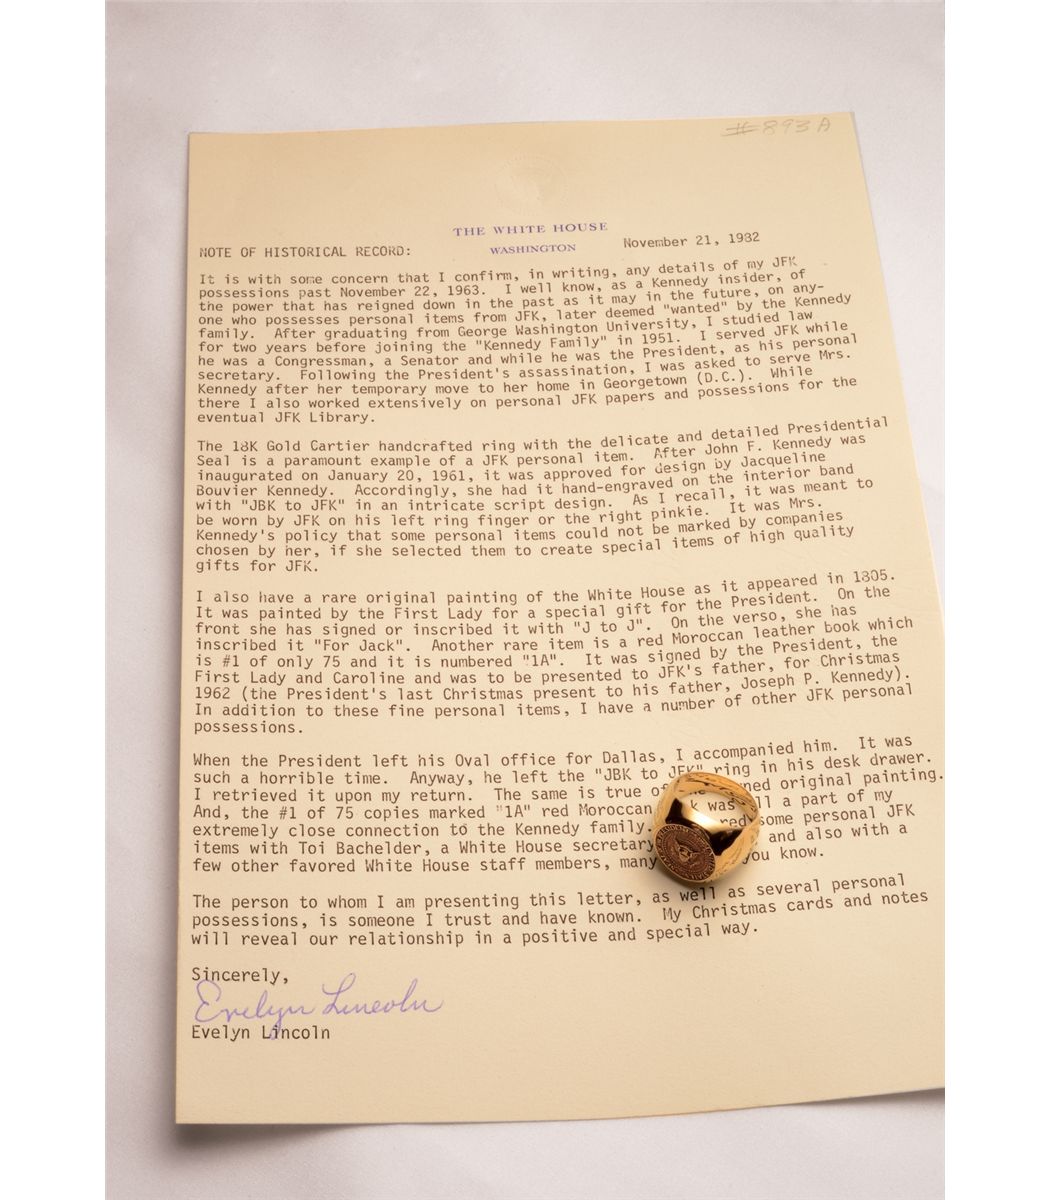 #893A
THE WHITE HOUSE
WASHINGTON
NOTE OF HISTORICAL RECORD:
November 21, 1982
It is with some concern that I confirm, in writing, any details of my JFK
possessions past November 22, 1963. I well know, as a Kennedy insider, of
the power that has reigned down in the past as it may in the future, on any-
one who possesses personal items from JFK, later deemed "wanted" by the Kennedy
family. After graduating from George Washington University, I studied law
for two years before joining the "Kennedy Family" in 1951. I served JFK while
he was a Congressman, a Senator and while he was the President, as his personal
secretary. Following the President's assassination, I was asked to serve Mrs.
Kennedy after her temporary move to her home in Georgetown (D.C.). While
there I also worked extensively on personal JFK papers and possessions for the
eventual JFK Library.
The 18K Gold Cartier handcrafted ring with the delicate and detailed Presidential
Seal is a paramount example of a JFK personal item. After John F. Kennedy was
inaugurated on January 20, 1961, it was approved for design by Jacqueline
Bouvier Kennedy. Accordingly, she had it hand-engraved on the interior band
with "JBK to JFK" in an intricate script design. As I recall, it was meant to
be worn by JFK on his left ring finger or the right pinkie. It was Mrs.
Kennedy's policy that some personal items could not be marked by companies
chosen by her, if she selected them to create special items of high quality
gifts for JFK.
I also have a rare original painting of the White House as it appeared in 1805.
It was painted by the First Lady for a special gift for the President. On the
front she has signed or inscribed it with "J to J". On the verso, she has
inscribed it "For Jack". Another rare item is a red Moroccan leather book which
is #1 of only 75 and it is numbered "1A". It was signed by the President, the
First Lady and Caroline and was to be presented to JFK's father, for Christmas
1962 (the President's last Christmas present to his father, Joseph P. Kennedy).
In addition to these fine personal items, I have a number of other JFK personal
possessions.
When the President left his Oval office for Dallas, I accompanied him. It was
such a horrible time. Anyway, he left the "JBK to JFK" ring in his desk drawer.
I retrieved it upon my return. The same is true of original painting.
And, the #1 of 75 copies marked "1A" red Moroccan was a part of my
extremely close connection to the Kennedy family. some personal JFK
items with Toi Bachelder, a White House secretary and also with a
few other favored White House staff members, many you know.
The person to whom I am presenting this letter, as well as several personal
possessions, is someone I trust and have known. My Christmas cards and notes
will reveal our relationship in a positive and special way.
Sincerely,
Evelyn Lincoln
Evelyn Lincoln